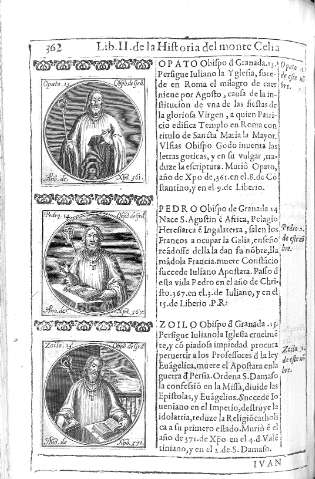 362 Lib. II. de la Historia del monte Celia
OPATO Obispo đ Granada. 13.
Persigue Iuliano la Yglesia, suce-
de en Roma el milagro de
niene por Agosto, causa de la ins-
titucion de vna de las fiestas de
la gloriosa Virgen, a quien Patri-
cio edifica Templo en Roma con
titulo de Sancta Maria la Mayor.
Vlsias Obispo Godo inuenta las
letras goticas, y en su vulgar, tra-
duze la escriptura. Murio Opato,
año de Xpo de .361. en el .8. de Co
stantino, y en el 9. de Liberio.
Opato 13
Obis. de Grā.
Año. de
Xpō. 361.
Opato 13.
bre.
PEDRO Obispo de Granada 14
Nace S. Agustin ē Africa, Pelagio
Heresiarca ē Ingalaterra, salen los
Francos a ocupar la Galia, enseño
reādose della la dan su nōbre, lla-
mādola Francia. muere Constācio
succede Iuliano Apostata. Passo đ
esta vida Pedro en el año de Chri-
sto. 367. en el .3. de Iuliano, y en el
15. de Liberio. P. R.
Pedro. 14
Obis. de Grā.
Año. de
Xpō. 367.
Pedro 2.
de este nō
bre.
ZOILO Obispo đ Granada .15.
Persigue Iuliano la Iglesia cruelmē-
te, y cō piadosa impiedad procura
peruertir a los Professores đ la ley
Euāgelica, muere el Apostata en la
guerra đ Persia. Ordena S. Damaso
la confessiō en la Missa, diuide las
Epistolas, y Euāgelios. Succede Io
ueniano en el Imperio, destruye la
idolatria, reduze la Religiō catholi-
ca a su primero estado. Murió ē el
año de 371. de Xpo en el 4. đ Valē-
tiniano, y en el 2. de S. Damaso.
Zoilo. 15
Obis. de Grā.
Año. de
Xpō. 371.
Zoilo
de este nō
bre.
IVAN